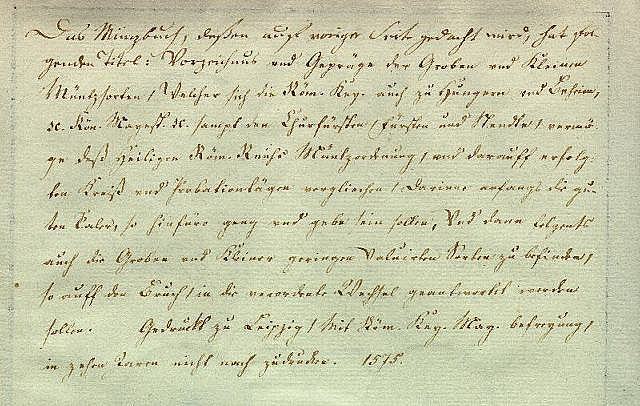 Das Münzbuch, deßen auf voriger Seite gedacht wird, hat fol-
genden Titel: Vorzeichnus vnd Gepräge der Groben vnd Kleinen
Müntzsorten / Welcher sich die Röm. Key. auch zu Hungern vnd Beheim,
ꝛc. Kön. Mayest. ꝛc. sampt den Churfürsten / Fürsten vnd Stende / vermö-
ge deß Heiligen Röm. Reichs Müntzordnung / vnd darauff erfolg-
ten Kreiß vnd Probationtägen vergliechen / Darinne anfangs die gu-
ten Taler, so hinfüro geng vnd gebe sein sollen, Vnd dann folgents
auch die Groben vnd Kleiner geringen Valuirten Sorten zu befinden /
so auff den Bruch / in die verordente Wechsel geantwortet werden
sollen. Gedruckt zu Leipzig / Mit Röm. Key. May. befreyung /
in zehen Jaren nicht nach zudrucken. 1575.